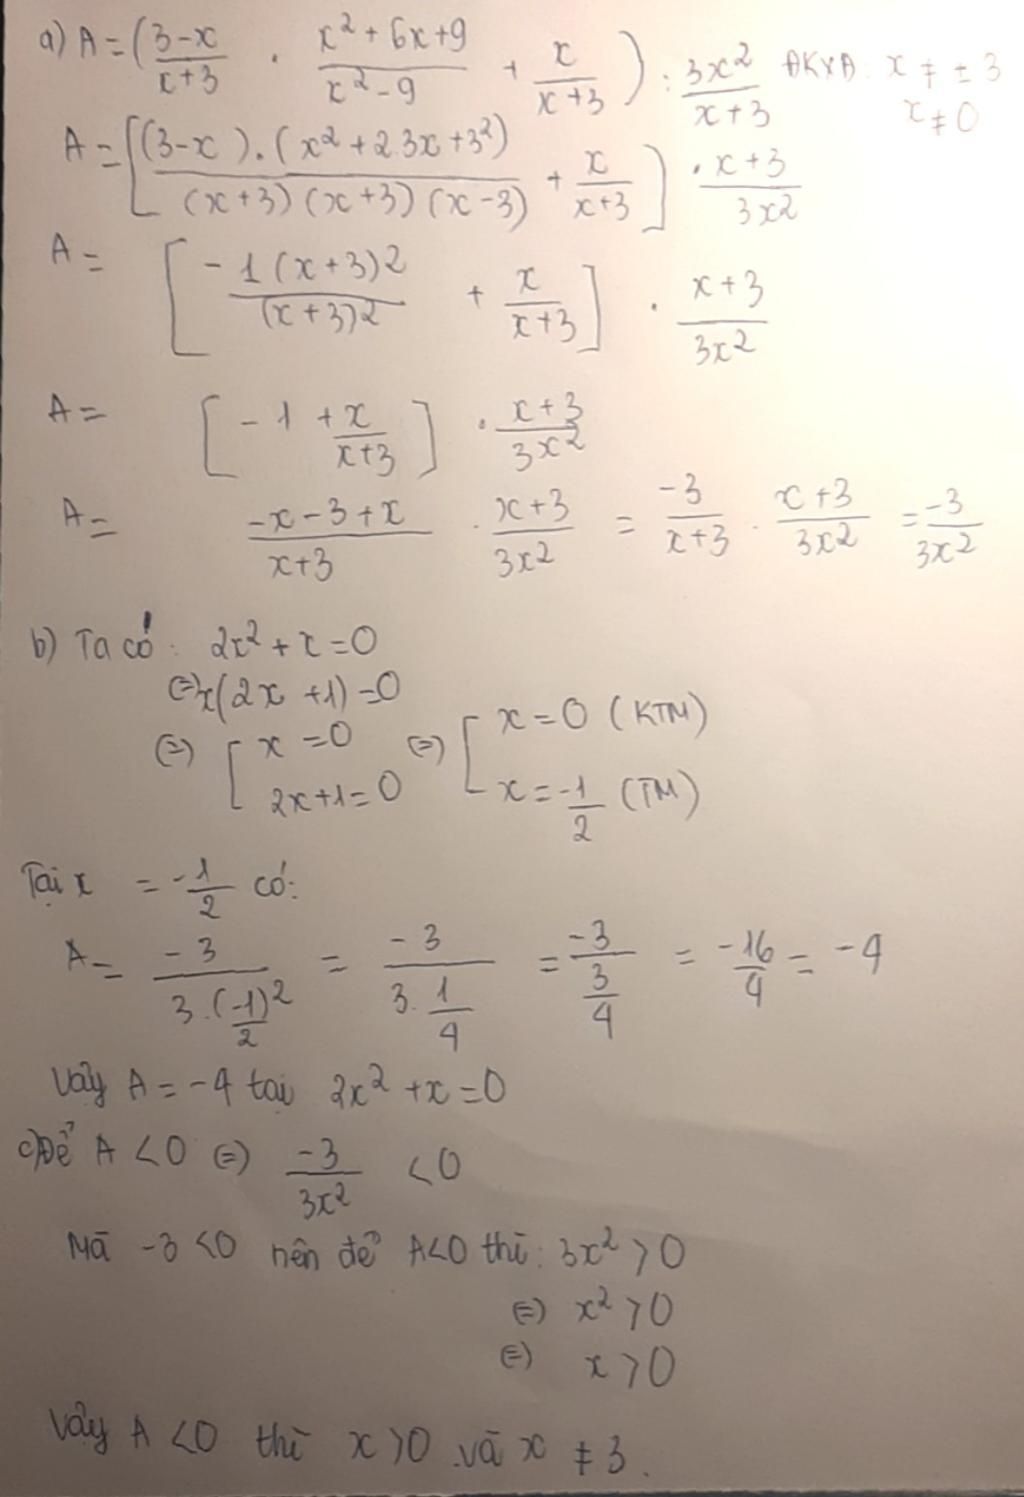 a) A = (3-x/x+3 . x²+6x+9/x²-9 + x/x+3) : 3x²/x+3 ĐKXĐ: x ≠ ±3
x ≠ 0
A = [(3-x).(x²+2.3x+3²)/(x+3)(x+3)(x-3) + x/x+3] . x+3/3x²
A = [-1(x+3)2/(x+3)2 + x/x+3] . x+3/3x²
A = [-1 + x/x+3] . x+3/3x²
A = -x-3+x/x+3 . x+3/3x² = -3/x+3 . x+3/3x² = -3/3x²
b) Ta có: 2x²+x=0
⇔ x(2x+1)=0
⇔ [x=0 ⇔ [x=0 (KTM)
2x+1=0 x=-1/2 (TM)
Tại x = -1/2 có:
A = -3/3.(-1/2)² = -3/3.1/4 = -3/3/4 = -16/4 = -4
Vậy A = -4 tại 2x²+x=0
c) Để A <0 ⇔ -3/3x² <0
Mà -3 <0 nên để A<0 thì: 3x²>0
⇔ x²>0
⇔ x>0
Vậy A <0 thì x>0 và x ≠ 3.